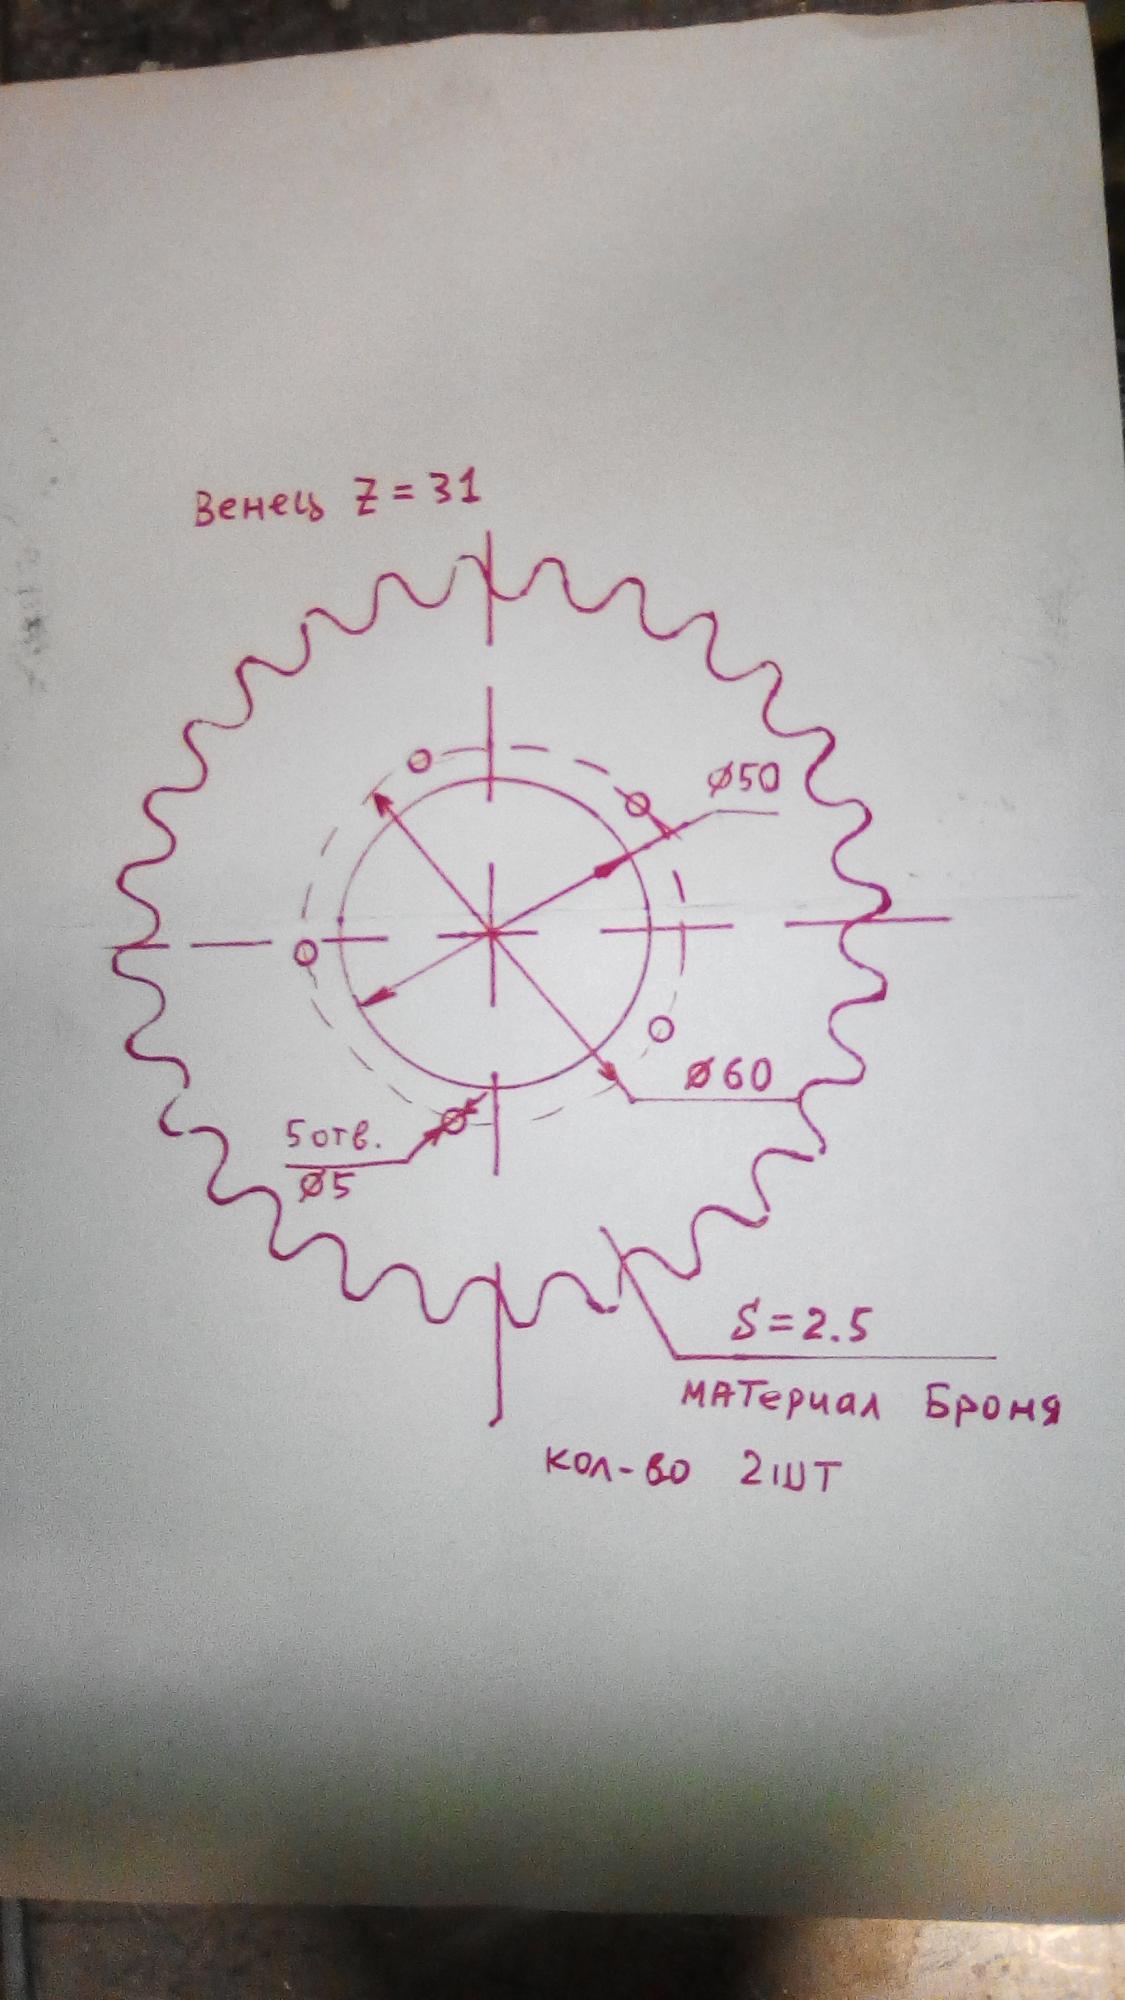 Венец Z=31
ø50
ø60
5отв.
ø5
S=2.5
Материал Броня
кол-во 2шт